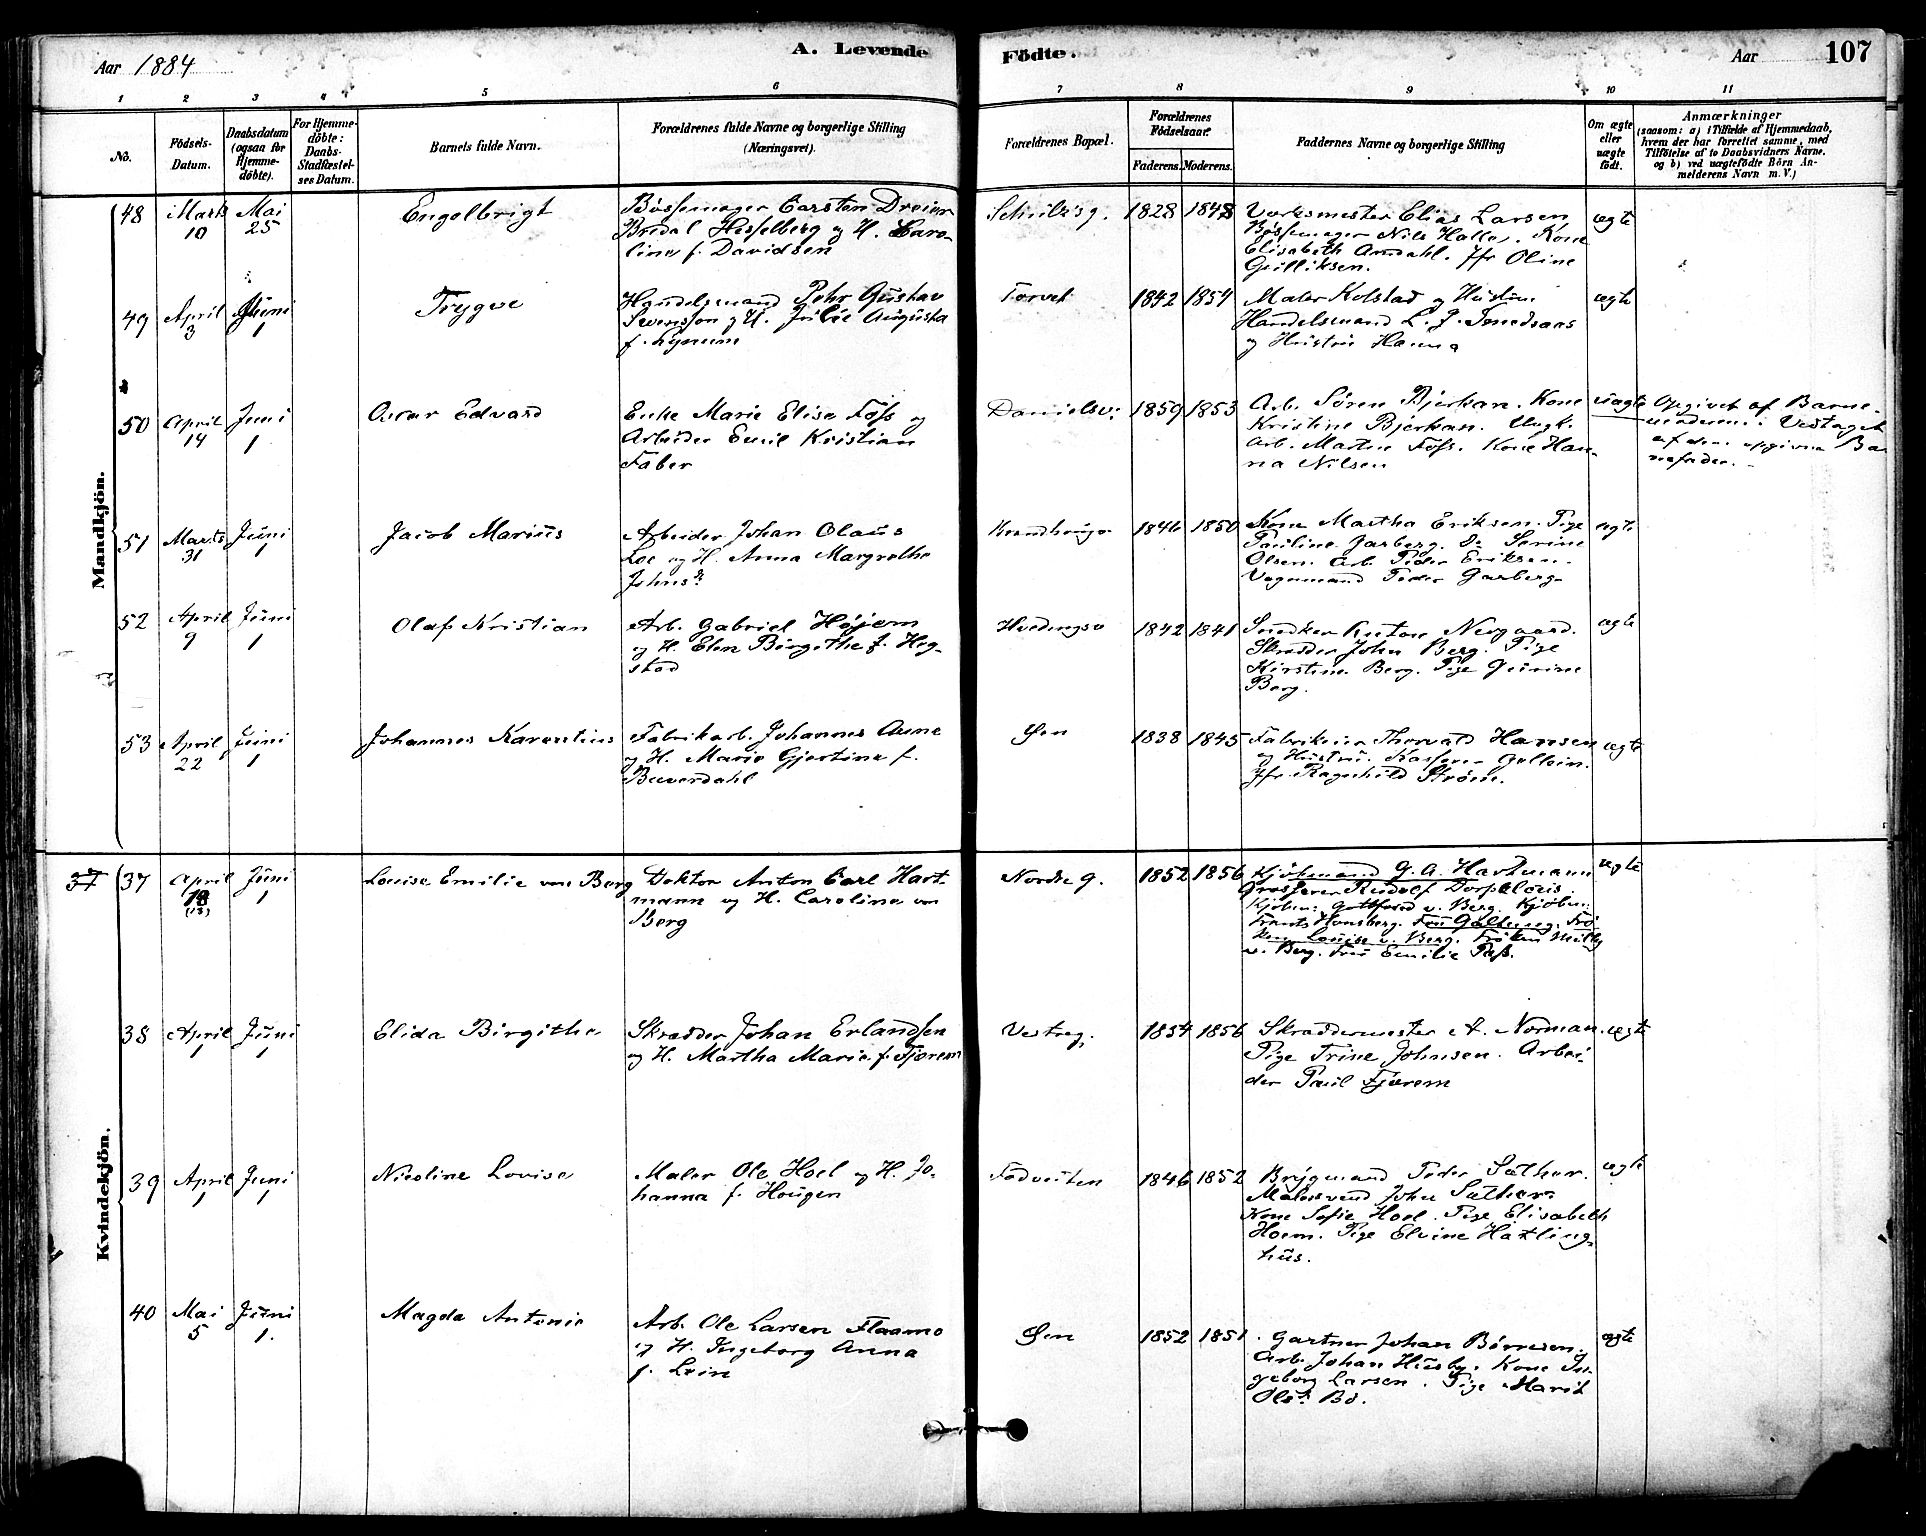 A. Levende Födte.
Aar 1884
Aar
107
1 2 3 4 5 6 7 8 9 10 11
No.
Födsels-
Datum.
Daabsdatum
(ogsaa for
Hjemme-
döbte).
For Hjemme-
döbte:
Daabs-
Stadfæstel-
ses Datum.
Barnets fulde Navn.
Forældrenes fulde Navne og borgerlige Stilling
(Næringsvei).
Forældrenes Bopæl.
Forældrenes
Födselsaar.
Faderens.
Moderens.
Faddernes Navne og borgerlige Stilling
Om ægte
eller
uægte
födt.
Anmærkninger
(saasom: a) i Tilfælde af Hjemmedaab,
hvem der har forrettet samme, med
Tilföielse af to Daabsvidners Navne.
og b) ved uægtefödte Börn An-
melderens Navn m. V.)
Mandkjön.
48
Marts
10
Mai
25
Engelbrigt
Bøssemager Carsten Dreier
Bredal Hesselberg og H. Karo-
line f. Davidsen
Schultzsg.
1828
1848
Værksmester Elias Larsen
Bøssemager Nils Halle. Kone
Elisabeth Amdahl. Jfr Oline
Gulliksen.
ægte
49
April
3
Juni
1
Trygve
Handelsmand Pehr Gustav
Svensson og H. Julie Augusta
f. Lynum
Torvet
1842
1854
Maler Kolstad og Hustru
Handelsmand L. J.
og Hustru Hanna
ægte
50
April
14
Juni
1
Oscar Edvard
Enke Marie Elise Foss og
Arbeider Emil Kristian
Faber
Danielsv:
1859
1853
Arb. Søren Bjerkan. Kone
Kristine Bjerkan. Ungk.
Arb. Martin Foss. Kone Han-
na Nilsen
uægte
Opgivet af Barne-
moderen. Vedtaget
af den opgivne Bar
nefader.
51
Marts
31
Juni
1
Jacob Marius
Arbeider Johan Olaus
Loe og H. Anna Margrethe
Johnsdr
1846
1850
Kone Martha Eriksen. Pige
Pauline Garberg. Do Serine
Olsen. Arb. Peder Eriksen.
Vognmand Peder Garberg.
ægte
52
April
9
Juni
1
Olaf Kristian
Arb. Gabriel Højem
og H. Elen Birgithe f. Heg-
stad
Hvedingsv
1842
1841
Snedker Anton Nergaard.
Skrædder John Berg. Pige
Kirstine Berg. Pige Gurine
Berg.
ægte
53
April
22
Juni
1
Johannes Karentius
Fabrikarb. Johannes Aune
og H. Marie Gjertine f.
Bæverdahl
Øen
1838
1845
Fabrikeier Thorvald Hansen
og Hustru. Kasserer Gellein.
Jfr. Ragnhild Strøm.
ægte
Kvindekjön.
37
37
April
18
(18)
Juni
1
Louise Emilie von Berg
Doktor Anton Carl Hart-
mann og H. Caroline von
Berg
Nordre g.
1852
1856
Kjøbmand G. A. Hartmann
Grosserer Rudolf
Kjøbm: v. Berg. Kjøbm:
Frants Hornsberg. Fru Galtung. Frø
ken Louise v. Berg. Frøken Milly
v. Berg. Fru Emilie
ægte
38
April
1
Juni
1
Elida Birgithe
Skrædder Johan Erlandsen
og H. Martha Marie f. Fjærem
Vestreg.
1854
1856
Skræddermester A. Norman.
Pige Trine Johnsen. Arbei-
der Paul Fjærem
ægte
39
April
1
Juni
1
Nicoline Lovise
Maler Ole Hoel og H. Jo-
hanna f. Hougen
Fodveiten
1846
1852
Brygmand Peder Sæther.
Malersvend John Sæther.
Kone Sofie Hoel. Pige Elisabeth
Hoem. Pige Elvine Hatling-
hus.
ægte
40
Mai
5
Juni
1.
Magda Antonie
Arb. Ole Larsen Flaamo
og H. Ingeborg Anna
f. Lein
Øen
1852
1851
Gartner Johan Børresen.
Arb. Johan Husby. Kone In-
geborg Larsen. Pige Marit
Olsdr Bø.
ægte